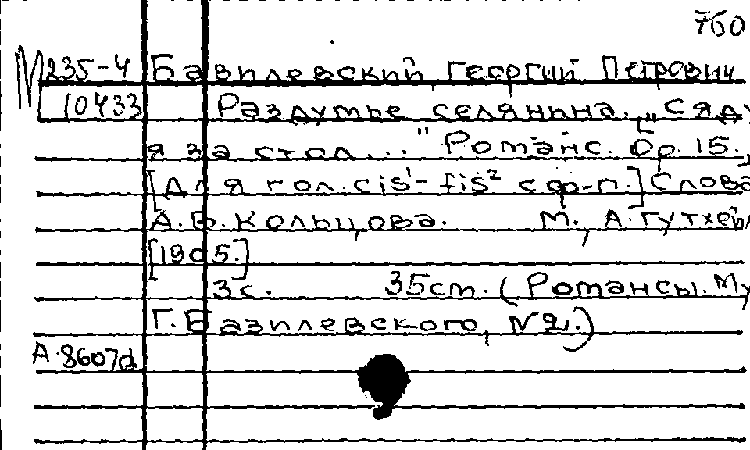 760
М 235-4 Базилевский, Георгий Петрович
10433 Раздумье селянина. „Сяду
я за стол..." Романс. Op. 15.
[Для гол. cis¹-fis² с ф-п.] Слова
А.В. Кольцова. М., А. Гутхейл
[1905.]
3 с. 35 см. (Романсы. Му
Г. Базилевского, №2.)
А.8607d